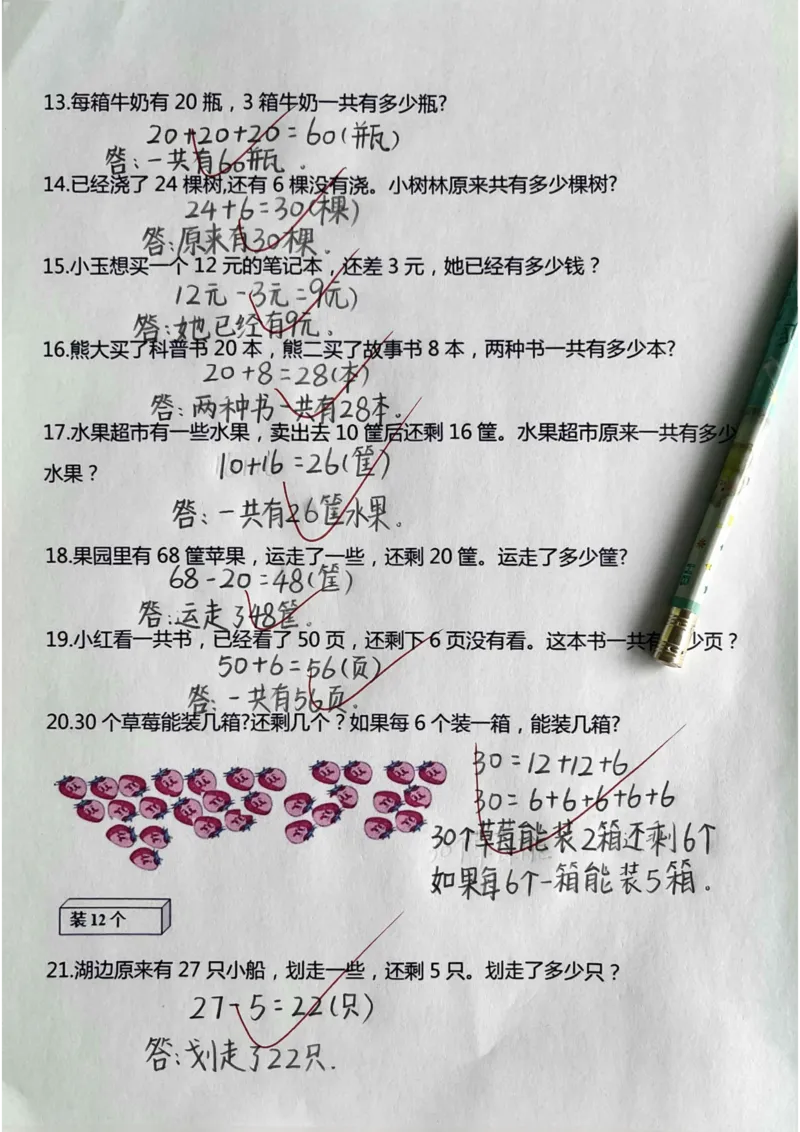 13.每箱牛奶有 20 瓶，3 箱牛奶一共有多少瓶?
20+20+20=60(瓶)
答:一共有60瓶。
14.已经浇了 24 棵树,还有 6 棵没有浇。小树林原来共有多少棵树?
24+6=30(棵)
答:原来有30棵。
15.小玉想买一个 12 元的笔记本，还差 3 元，她已经有多少钱？
12元-3元=9元)
答:她已经有9元.
16.熊大买了科普书 20 本，熊二买了故事书 8 本，两种书一共有多少本?
20+8=28(本)
答:两种书一共有28本。
17.水果超市有一些水果，卖出去 10 筐后还剩 16 筐。水果超市原来一共有多少
水果？
10+16=26(筐)
答:一共有26筐水果。
18.果园里有 68 筐苹果，运走了一些，还剩 20 筐。运走了多少筐?
68-20=48(筐)
答:运走了48筐.
19.小红看一共书，已经看了 50 页，还剩下 6 页没有看。这本书一共有 少页？
50+6=56(页)
答:一共有56页.
20.30 个草莓能装几箱?还剩几个？如果每 6 个装一箱，能装几箱?
30=12+12+6
30=6+6+6+6+6
30个草莓能装2箱还剩6个
如果每6个一箱能装5箱。
装12个
21.湖边原来有 27 只小船，划走一些，还剩 5 只。划走了多少只？
27-5=22(只)
答:划走了22只.
HB